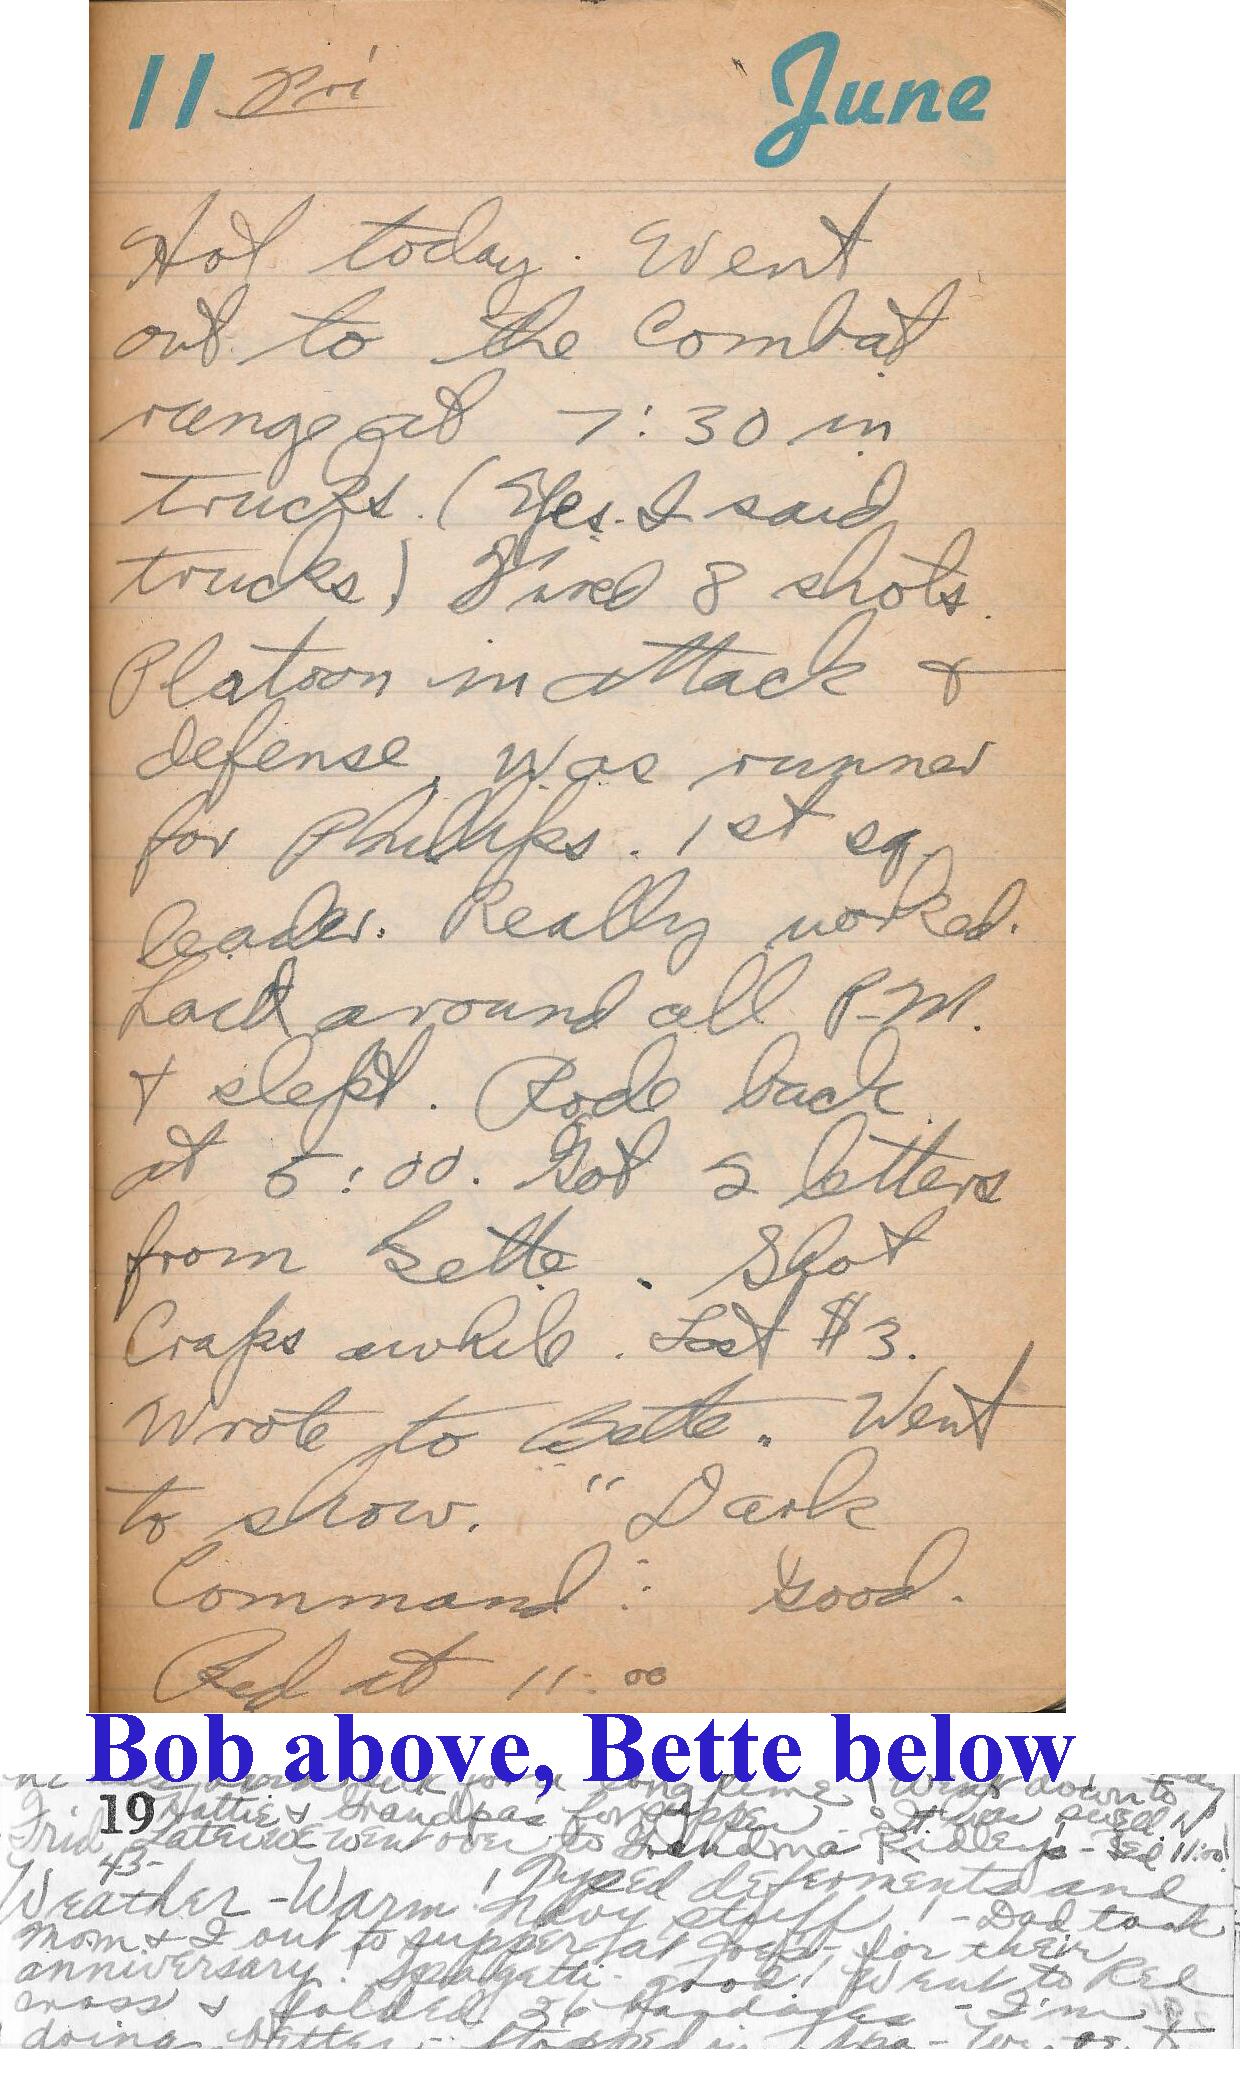 11 Fri June
Hot today. Went
out to the Combat
range at 7:30 in
trucks. (Yes. I said
trucks) Fired 8 shots.
Platoon in attack &
defense. Was runner
for Phillips. 1st sq
leader. Really worked.
around all P.M.
& slept. Rode back
at 5:00. Got 2 letters
from Bette. Shot
Craps awhile. Lost $3.
Wrote to Bette. Went
to show. "Dark
Command". Good.
Bed at 11:00
Bob above, Bette below
for a long time! Went down to
19 Hattie & Grandpas for supper - It was swell
Frid Later we went over to Grandma Ridley's - Bed 11:00!
43-
Weather - Warm! Typed deferments and
Navy stuff! - Dad took
Mom & I out to supper at Joe's - for their
anniversary! Spagetti - good! Went to Red
cross & folded 36 bandages - I'm
doing better - Stopped in